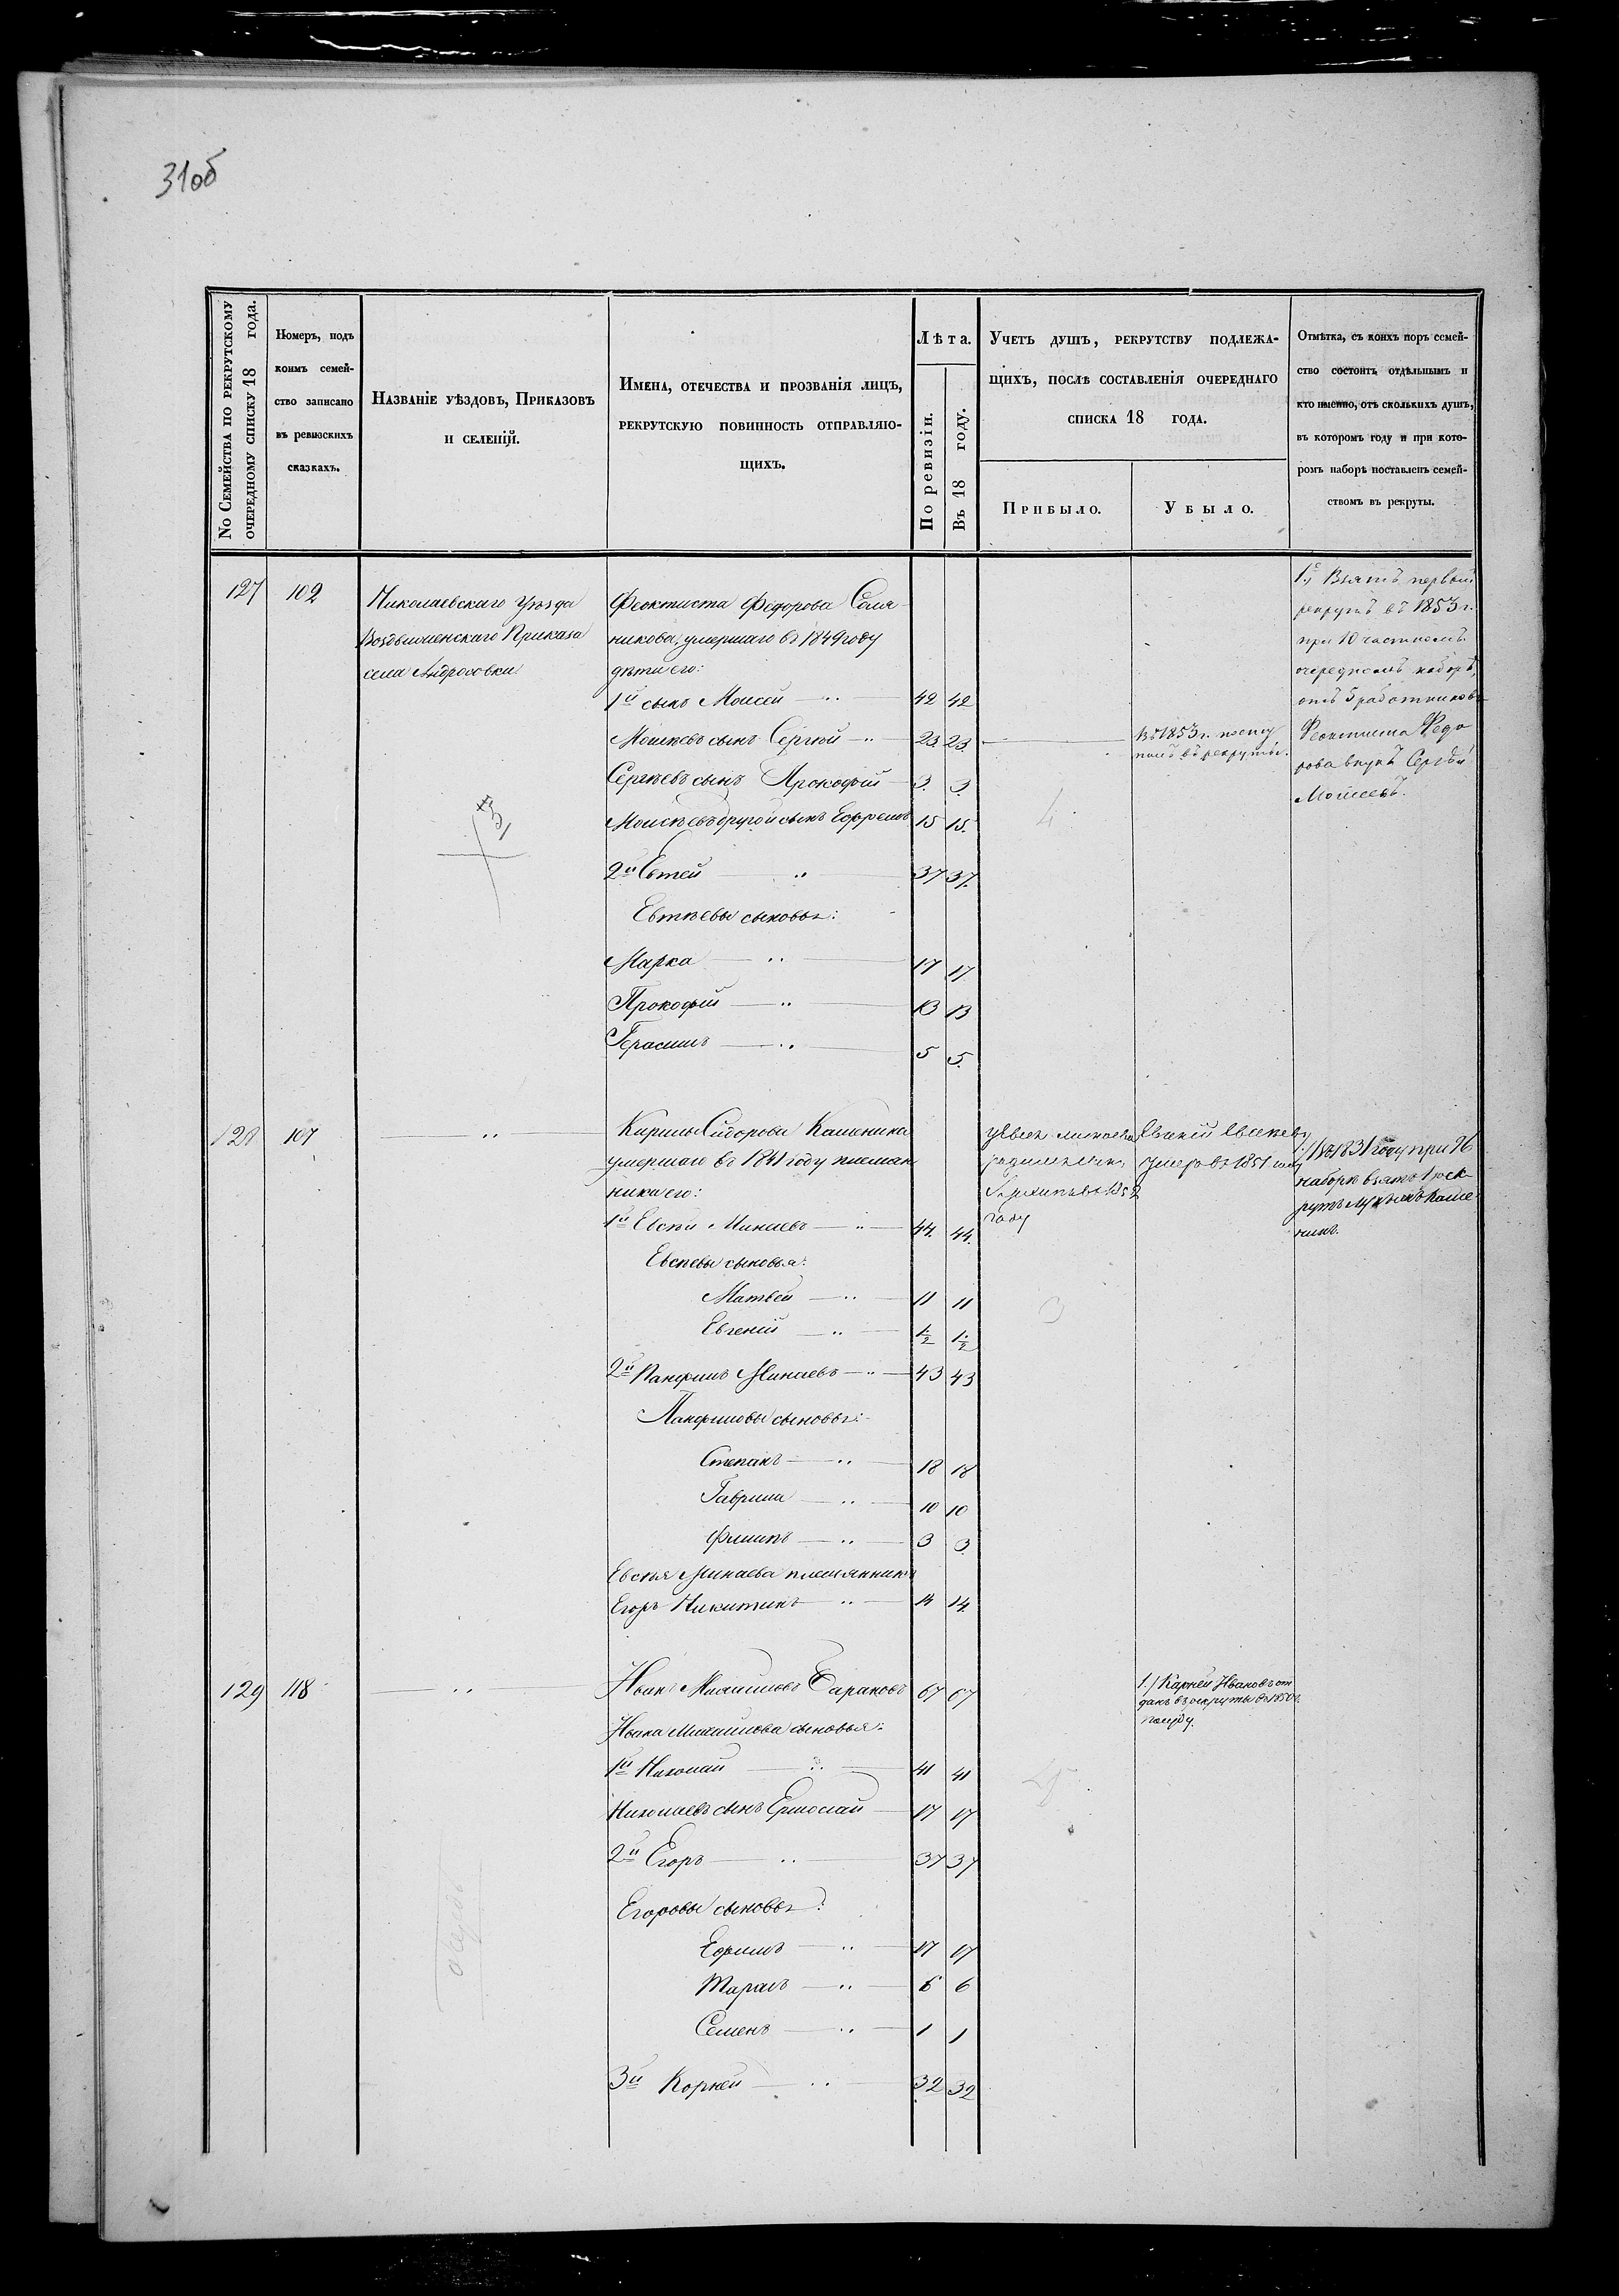 31об
No Семейства по рекрутскому
очередному списку 18 года.
Номеръ, подъ
коимъ семей-
ство записано
въ ревизскихъ
сказкахъ.
Названіе уѣздовъ, Приказовъ
и селеній.
Имена, отечества и прозванія лицъ,
рекрутскую повинность отправляю-
щихъ.
Лѣта.
По ревизіи.
Въ 18 году.
Учетъ душъ, рекрутству подлежа-
щихъ, послѣ составленія очереднаго
списка 18 года.
Прибыло.
Убыло.
Отмѣтка, съ коихъ поръ семей-
ство состоитъ отдѣльнымъ и
кто именно, отъ сколькихъ душъ,
въ которомъ году и при кото-
ромъ наборѣ поставленъ семей-
ствомъ въ рекруты.
127 102
Николаевскаго уѣзда
Воздвиженскаго Приказа
села Андросовки
Феоктиста Федорова Соля-
никова, умершаго въ 1849 году
дѣти его:
1й сынъ Моисей 42 42
Моисѣевъ сынъ Сергѣй 23 23
Въ 1853 г. посту
палъ въ рекруты.
Сергѣевъ сынъ Прокофій 3. 3.
Моисѣевъ другой сынъ Ефремъ 15 15.
4
2й Евтей 37 37.
Евтѣевы сыновья:
Марка 17 17
Прокофій 13 13
Герасимъ 5 5.
1. Взятъ первый
рекрутъ въ 1853 г.
при 10 частномъ
очередномъ наборѣ,
отъ 5 работниковъ
Феоктиста Федо
рова внукъ Сергѣй
Моисеевъ.
128 107
Кирилы Сидорова Каленика
умершаго въ 1841 году племян
ники его:
1й Евсѣй Минаевъ 44. 44.
Евсѣевы сыновья:
Матвей 11 11
Евгеній 1/2 1/2
2й Панфилъ Минаевъ 43 43
Панфиловы сыновья:
Степанъ 18 18
Гаврила 10 10
Филипъ 3 3
Евсѣя Минаева племянникъ
Егоръ Никитинъ 14 14
году
умеръ въ 1851 году
Въ 1831 году при 96
наборѣ взятъ 1 рек-
129 118
Иванъ Михайловъ Барановъ 67 67
Ивана Михайлова сыновья:
1й Николай 41 41
Николаевъ сынъ Ермолай 17 17
2й Егоръ 37 37
Егоровы сыновья:
Ефимъ 17 17
Тарасъ 6 6
Семенъ 1 1
3й Корней 32 32
1./ Карней Ивановъ от
данъ въ рекруты въ 1850